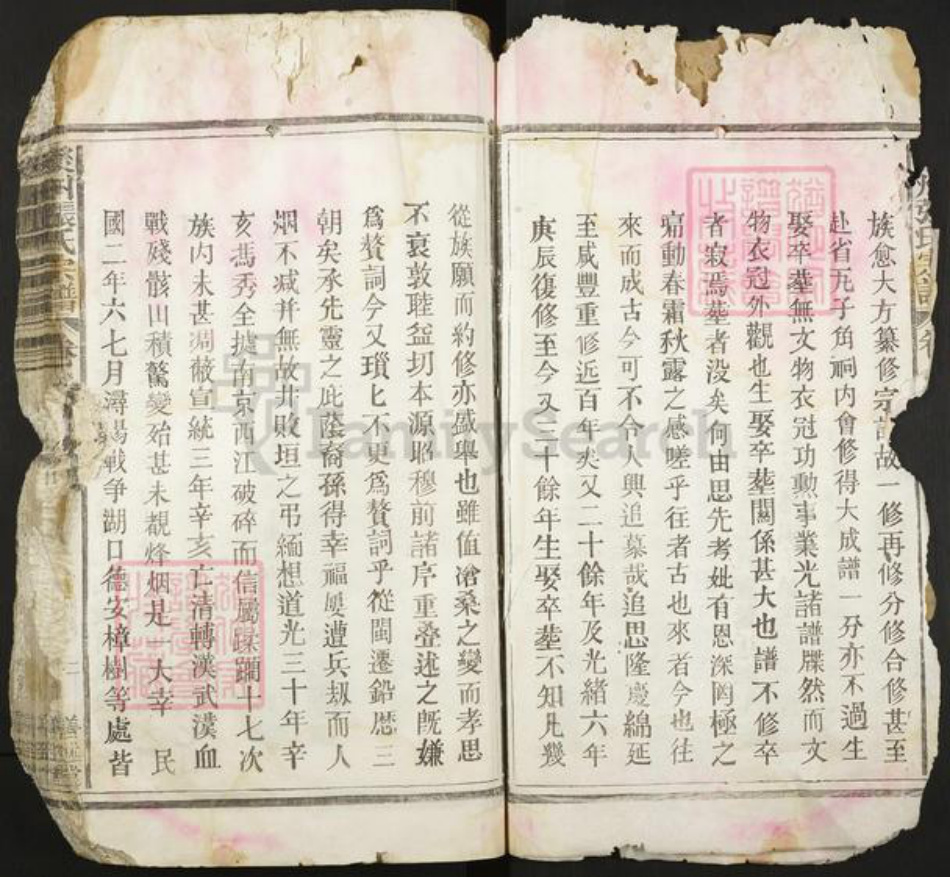 族愈大方纂修宗譜故一修再修分修合修甚至
赴省五子角祠内會修得大成譜一分亦不過生
娶卒塟無文物衣冠功勳事業光諸譜牒然而文
物衣冠外觀也生娶卒塟關係甚大也譜不修卒
者寂焉塟者没矣何由思先考妣有恩深罔極之
痛動春霜秋露之感嗟乎往者古也來者今也往
來而成古今可不令人興追慕哉追思隆慶綿延
至咸豐重修近百年矣又二十餘年及光緒六年
庚辰復修至今又三十餘年生娶卒塟不知凡幾
從族願而約修亦盛舉也雖值滄桑之變而孝思
不衰敦睦益切本源昭穆前諸序重叠述之旣嫌
爲贅詞今又瑣上不更爲贅詞乎從閩遷鉛歷三
朝矣承先靈之庇蔭裔孫得幸福屢遭兵刼而人
烟不减并無故井敗垣之弔緬想道光三十年辛
亥馮秀全據南京西江破碎而信屬蹂躪十七次
族内未甚凋敝宣統三年辛亥亡清轉漢武漢血
戰殘骸山積驚變殆甚未覩烽烟是一大幸 民
國二年六七月潯陽戰争湖口德安樟樹等處皆
張氏宗譜
FamilySearch